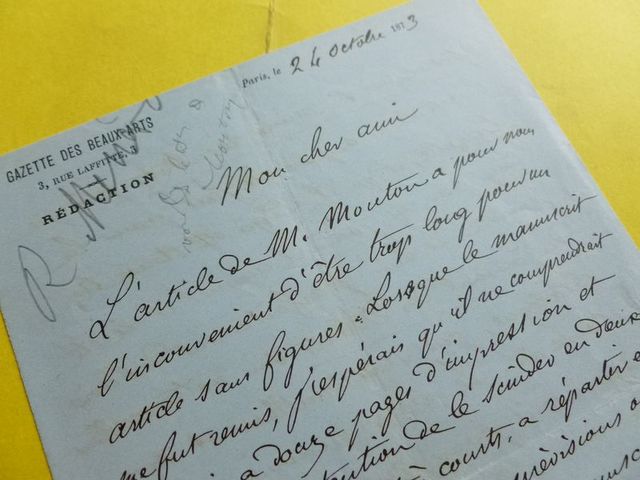 GAZETTE DES BEAUX-ARTS
3, RUE LAFFITTE, 3
RÉDACTION
Paris, le 24 octobre 1873
Mon cher ami
L'article de M. Mouton a pour nous
l'inconvenient d'être trop long pour un
article sans figures. Lorsque le manuscrit
me fut remis, j'espérais qu'il ne comprendrait
a douze pages d'impression et
de le scinder en deux
courts, a répartir e
prévisions